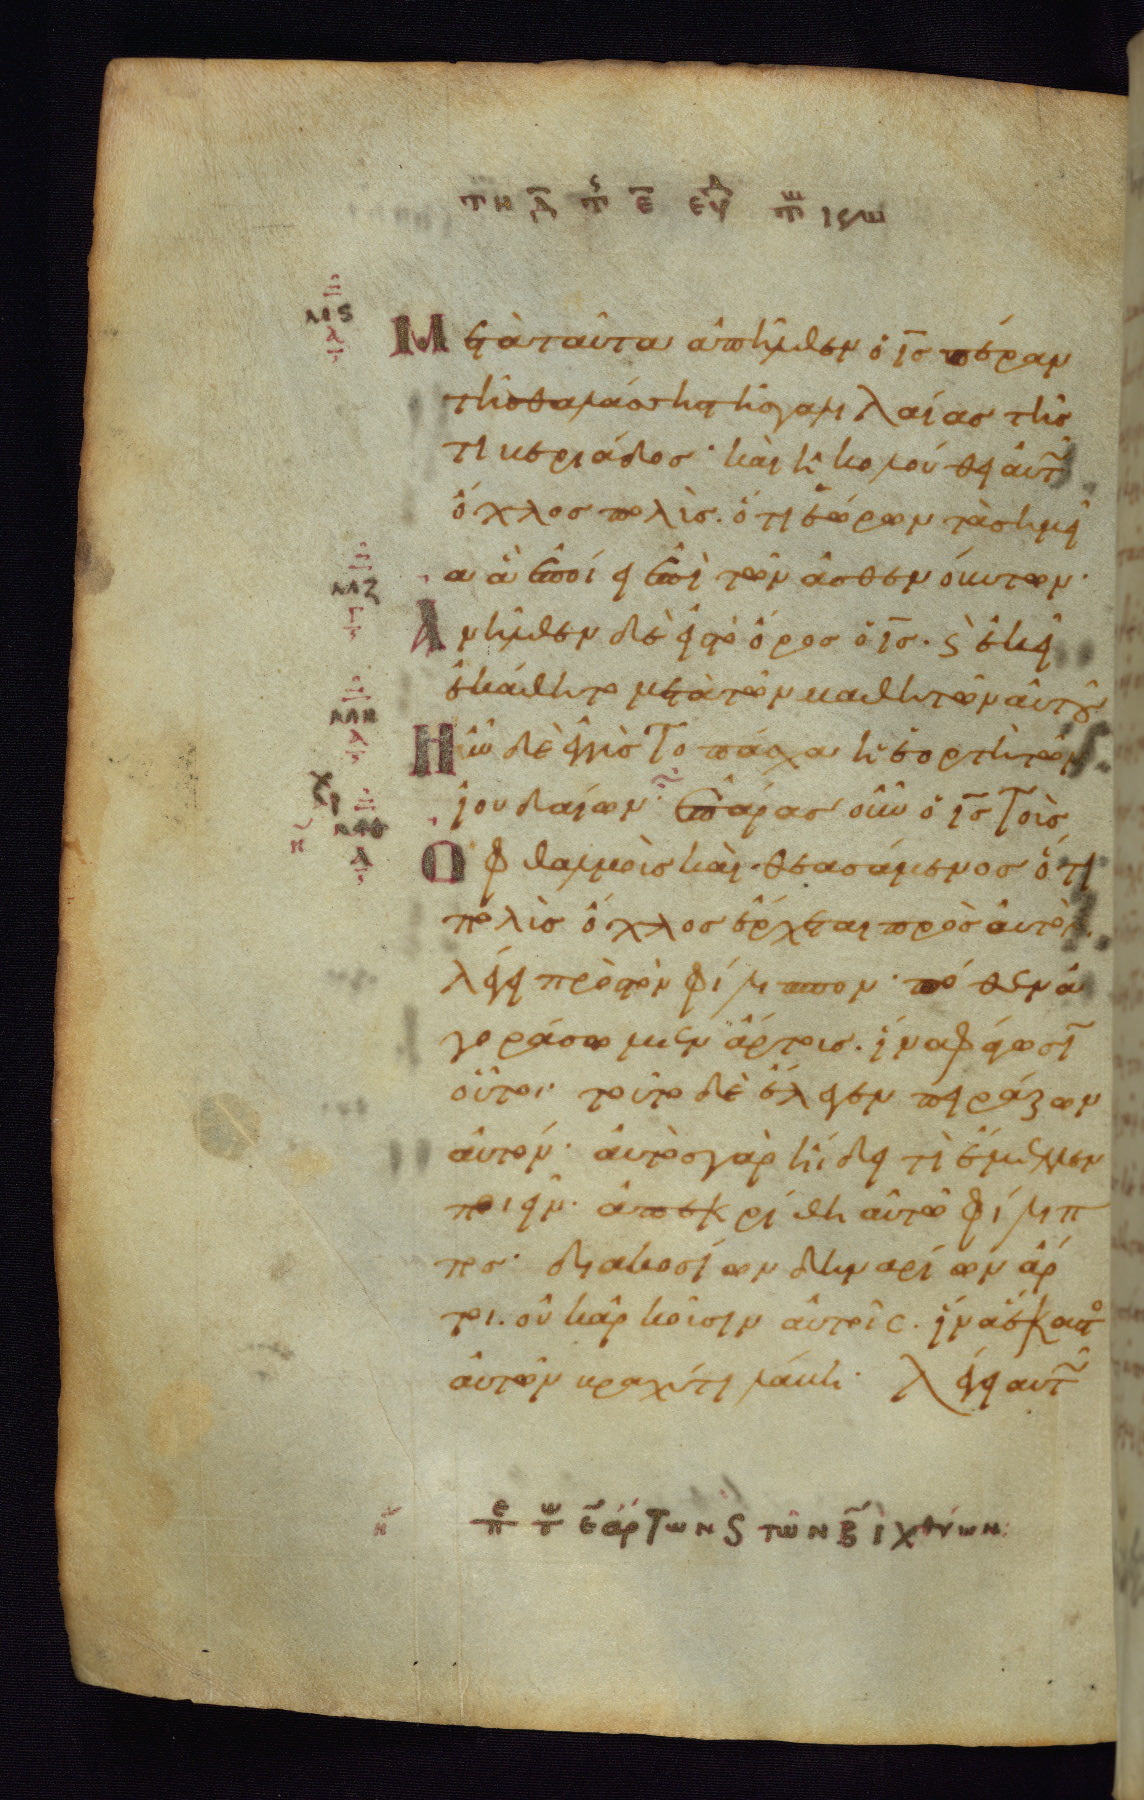 τη δ τς ε ευα τω ιςω
Μετὰ ταῦτα ἀπῆλθεν ὁ ις πέραν
τῆς θαλάσσης τῆς γαλιλαίας τῆς
τιβεριάδος· καὶ ἠκολούθει αὐτ
ὄχλος πολὺς. ὅτι ἑώρων τὰ σημεῖ
α ἃ ἐποίει ἐπὶ τῶν ἀσθενούντων·
Ἀνῆλθεν δὲ εἰς τὸ ὄρος ὁ ις. ϛ ἐκεῖ
ἐκάθητο μετὰ τῶν μαθητῶν αὐτοῦ
Ἦν δὲ ἐγγὺς το πάσχα ἡ ἑορτὴ τῶν
ἰουδαίων· ἐπάρας οὖν ὁ ις τοὺς
Ὀφθαλμοὺς καὶ θεασάμενος ὅτι
πολὺς ὄχλος ἔρχεται πρὸς αὐτὸν.
λέγει πρὸς τὸν φίλιππον· πόθεν ἀ
γοράσωμεν ἄρτους. ἵνα φάγωσῖ
οὗτοι· τοῦτο δὲ ἔλεγεν πειράζων
αὐτόν· αὐτὸς γὰρ ἤδει τί ἔμελλεν
ποιεῖν· ἀπεκρίθη αὐτῶ φίλιπ
πος· διακοσίων δηναρίων ἄρ
τοι. οὐκ ἀρκοῦσιν αὐτοῖς. ἵνα ἕκαστο
αὐτῶν βραχύ τι λάβη· λέγει αὐτ
πε τω ε ἄρτων ϛ τῶν β ἰχθύων:
μς
α
μζ
γ
μη
α
μθ
α
η
η